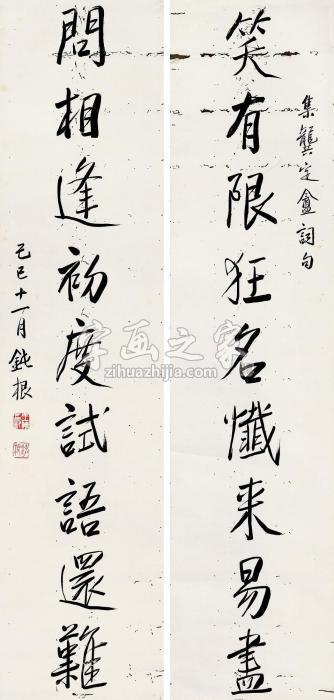 集龔定盦詞句
笑有限狂名懺来易盡
問相逢初度試語還難
己巳十一月鈍根
字画之家
zihuazhijia.com